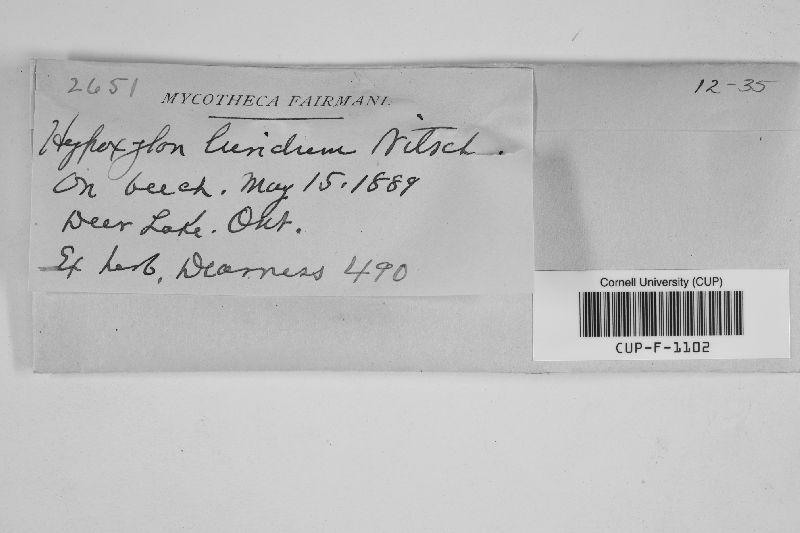 2651
12-35
MYCOTHECA FAIRMANI.
Hypoxylon luridum Nitsch.
On beech. May 15. 1889
Deer Lake. Ont.
Ex herb. Dearness 490
Cornell University (CUP)
CUP-F-1102